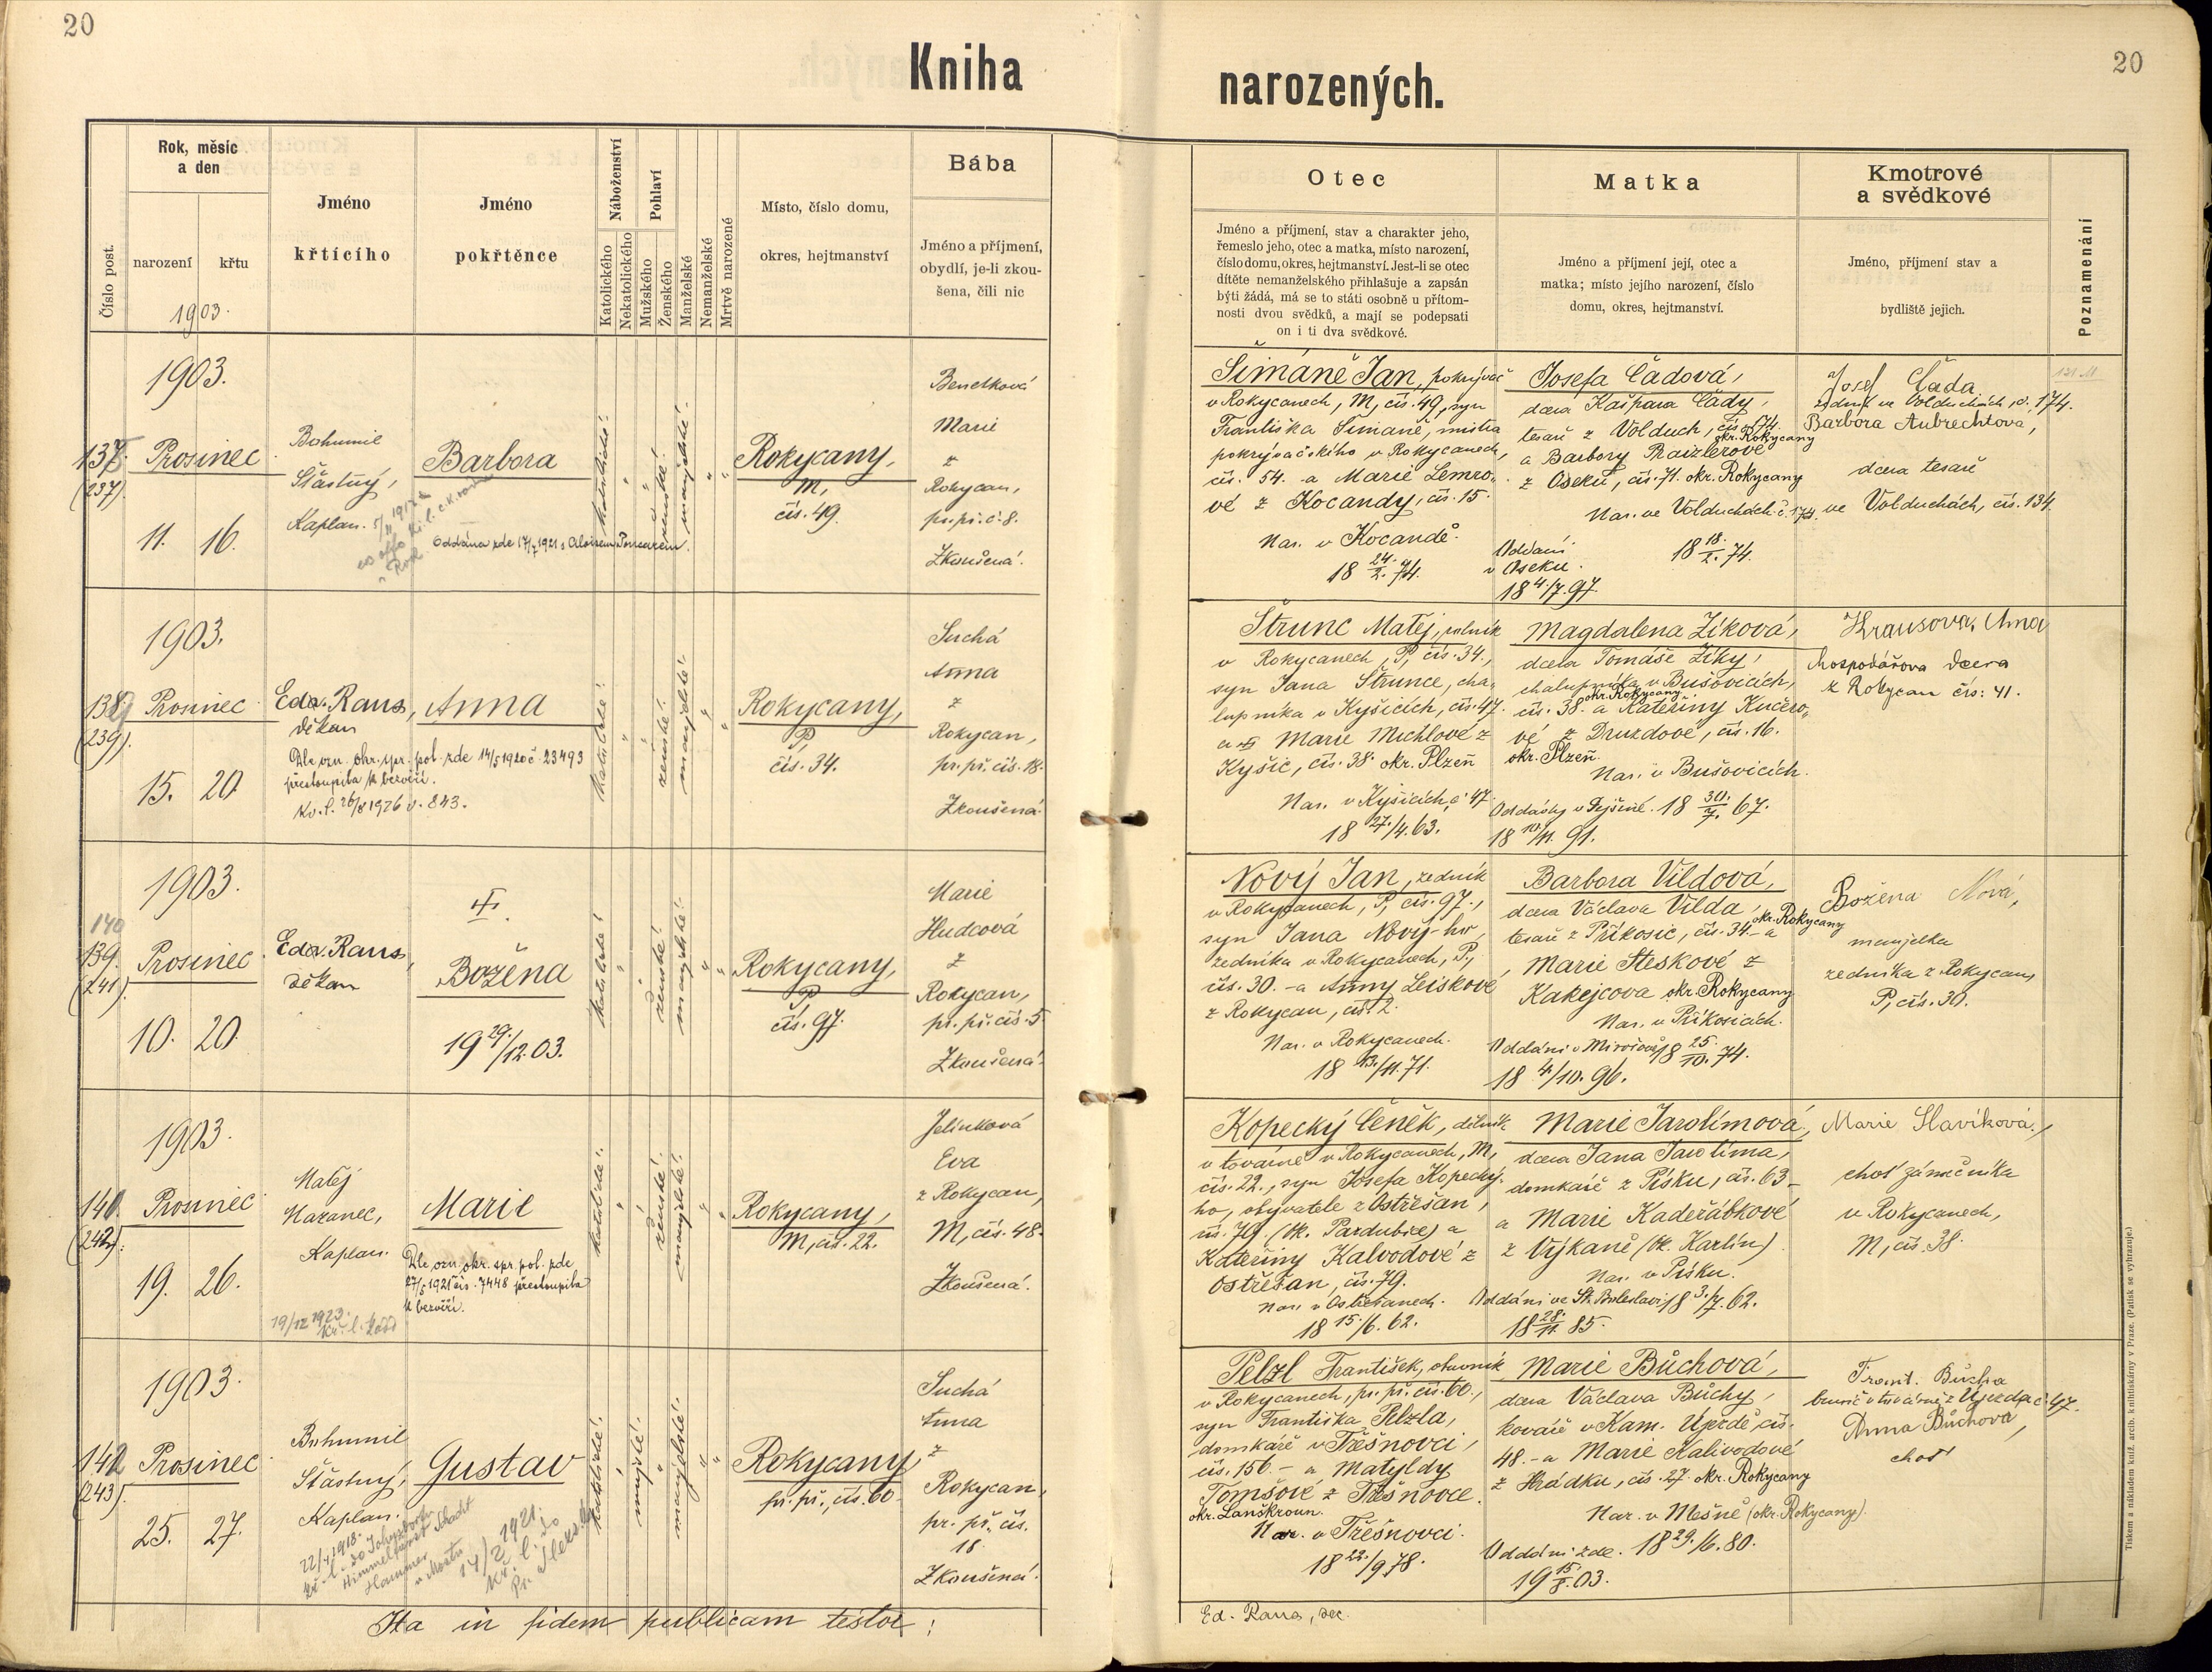 20
20
Kniha
narozených.
Číslo post.
Rok, měsíc
a den
narození
křtu
1903.
Jméno
křtícího
Jméno
pokřtěnce
Náboženství
Katolického
Nekatolického
Pohlaví
Mužského
Ženského
Manželské
Nemanželské
Mrtvě narozené
Místo, číslo domu,
okres, hejtmanství
Bába
Jméno a příjmení,
obydlí, je-li zkou-
šena, čili nic
Otec
Jméno a příjmení, stav a charakter jeho,
řemeslo jeho, otec a matka, místo narození,
číslo domu, okres, hejtmanství. Jest-li se otec
dítěte nemanželského přihlašuje a zapsán
býti žádá, má se to státi osobně u přítom-
nosti dvou svědků, a mají se podepsati
on i ti dva svědkové.
Matka
Jméno a příjmení její, otec a
matka; místo jejího narození, číslo
domu, okres, hejtmanství.
Kmotrové
a svědkové
Jméno, příjmení stav a
bydliště jejich.
Poznamenání
1903.
(237).
Prosinec
11. 16.
Bohumil
Šťastný,
Kaplan.
Barbora
Oddána zde 17/7 1921 s Aloisem
katolické!
ženské!
manželské!
Rokycany,
M,
čís. 49.
Benetková
Marie
z
Rokycan,
pr. př. č. 8.
Zkoušená.
Šimáně Jan, pokrývač
v Rokycanech, M, čís. 49, syn
Františka Šimáně, mistra
pokrývačského v Rokycanech,
čís. 54. a Marie Lemro-
vé z Kocandy, čís. 15.
Nar. v Kocandě.
18 24./2. 74.
Josefa Čadová,
dcera Kašpara Čady,
tesaře z Volduch, čís. 174.
okr. Rokycany
a Barbory Praizlerové
z Oseku, čís. 71. okr. Rokycany
Nar. ve Volduchách č. 174.
18 18./2. 74.
Oddáni
v Oseku.
18 4./7. 97.
Josef Čada,
zedník ve Volduchách, č. 174.
Barbora Aubrechtova,
dcera tesaře
ve Volduchách, čís. 134.
1903.
(239).
Prosinec
15. 20.
Edv. Raus,
děkan
Anna
Dle ozn. okr. spr. pol. zde 14/5 1920 č. 23493
přestoupila k bezvěří.
Kř. l. 26/8 1926 č. 843.
katolické!
ženské!
manželské!
Rokycany,
P,
čís. 34.
Suchá
Anna
z
Rokycan,
pr. př. čís. 18.
Zkoušená.
Štrunc Matěj, rolník
v Rokycanech, P, čís. 34.,
syn Jana Štrunce, cha-
lupníka v Kyšicích, čís. 47.
a Marie Michlové z
Kyšic, čís. 38. okr. Plzeň
Nar. v Kyšicích, č. 47.
18 27./4. 63.
Magdalena Zíková,
dcera Tomáše Zíky,
chalupníka v Bušovicích,
okr. Rokycany
čís. 38. a Kateřiny Kučero-
vé z Druzdové, čís. 16.
okr. Plzeň.
Nar. v Bušovicích.
18 30./7. 67.
Oddáni v
18 10./11. 91.
Krausova, Anna
hospodářova dcera
z Rokycan čís: 41.
1903.
140
139.
(241).
Prosinec
10. 20.
Edv. Raus,
děkan
Božena
19 29./12. 03.
katolické!
ženské!
manželské!
Rokycany,
P,
čís. 97.
Marie
Hudcová
z
Rokycan,
pr. př. čís. 5.
Zkoušená.
Nový Jan, zedník
v Rokycanech, P, čís. 97.,
syn Jana Nový-ho,
zedníka v Rokycanech, P,
čís. 30. - a Anny Leiskové
z Rokycan, čís. 2.
Nar. v Rokycanech.
18 13./11. 71.
Barbora Vildová,
dcera Václava Vilda,
okr. Rokycany
tesaře z Příkosic, čís. 34. - a
Marie Steskové z
Kakejcova okr. Rokycany
Nar. v Příkosicích.
18 25./10. 74.
Oddáni v Mirošově
18 4./10. 96.
Božena Nová,
manželka
zedníka z Rokycan,
P, čís. 30.
1903.
(242).
Prosinec
19. 26.
Matěj
Kaplan.
19/12 1923.
Marie
Dle ozn. okr. spr. pol. zde
27/5 1921 čís. 7448 přestoupila
k bezvěří.
katolické!
ženské!
manželské!
Rokycany,
M, čís. 22.
Jelínková
Eva
z Rokycan,
M, čís. 48.
Zkoušená.
Kopecký Čeněk, dělník
v továrně v Rokycanech, M,
čís. 22., syn Josefa Kopecký-
ho, obyvatele z Ostřešan,
čís. 79. (Ok. Pardubice) a
Kateřiny Kalvodové z
Ostřešan, čís. 79.
Nar. v Ostřešanech.
18 15./6. 62.
Marie Jarolímová,
dcera Jana Jarolíma,
domkáře z Písku, čís. 63 -
a Marie Kadeřábkové
z Výkaně (Ok. Karlín)
Nar. v Písku.
18 3./7. 62.
Oddáni ve St. Boleslavi
18 28./11. 85.
Marie Slavíková,
choť zámečníka
v Rokycanech,
M, čís. 38.
1903.
142
(243).
Prosinec
25. 27.
Bohumil
Šťastný,
Kaplan.
Gustav
katolické!
mužské!
manželské!
Rokycany,
pr. př., čís. 60.
Suchá
Anna
z
Rokycan,
pr. př., čís.
18.
Zkoušená.
Pelzl František, obuvník
v Rokycanech, pr. př. čís. 60.,
syn Františka Pelzla,
domkáře v Třešňovci,
čís. 156. - a Matyldy
Tomšové z Třešňovce.
okr. Lanškroun.
Nar. v Třešňovci.
18 22./9. 78.
Marie Bůchová,
dcera Václava Bůchy,
kováře v Kam. Újezdě čís.
48. - a Marie Kalivodové
z Hrádku, čís. 27. okr. Rokycany
Nar. v Mešně (okr. Rokycany).
18 29./6. 80.
Oddáni zde.
19 15./8. 03.
Frant. Bůcha
brusič v továrně z Újezda č. 47.
Anna Bůchová,
choť
Ita in fidem publicam testor:
Ed. Raus, dec.
Tiskem a nákladem kníž. arcib. knihtiskárny v Praze. (Patisk se vyhrazuje.)